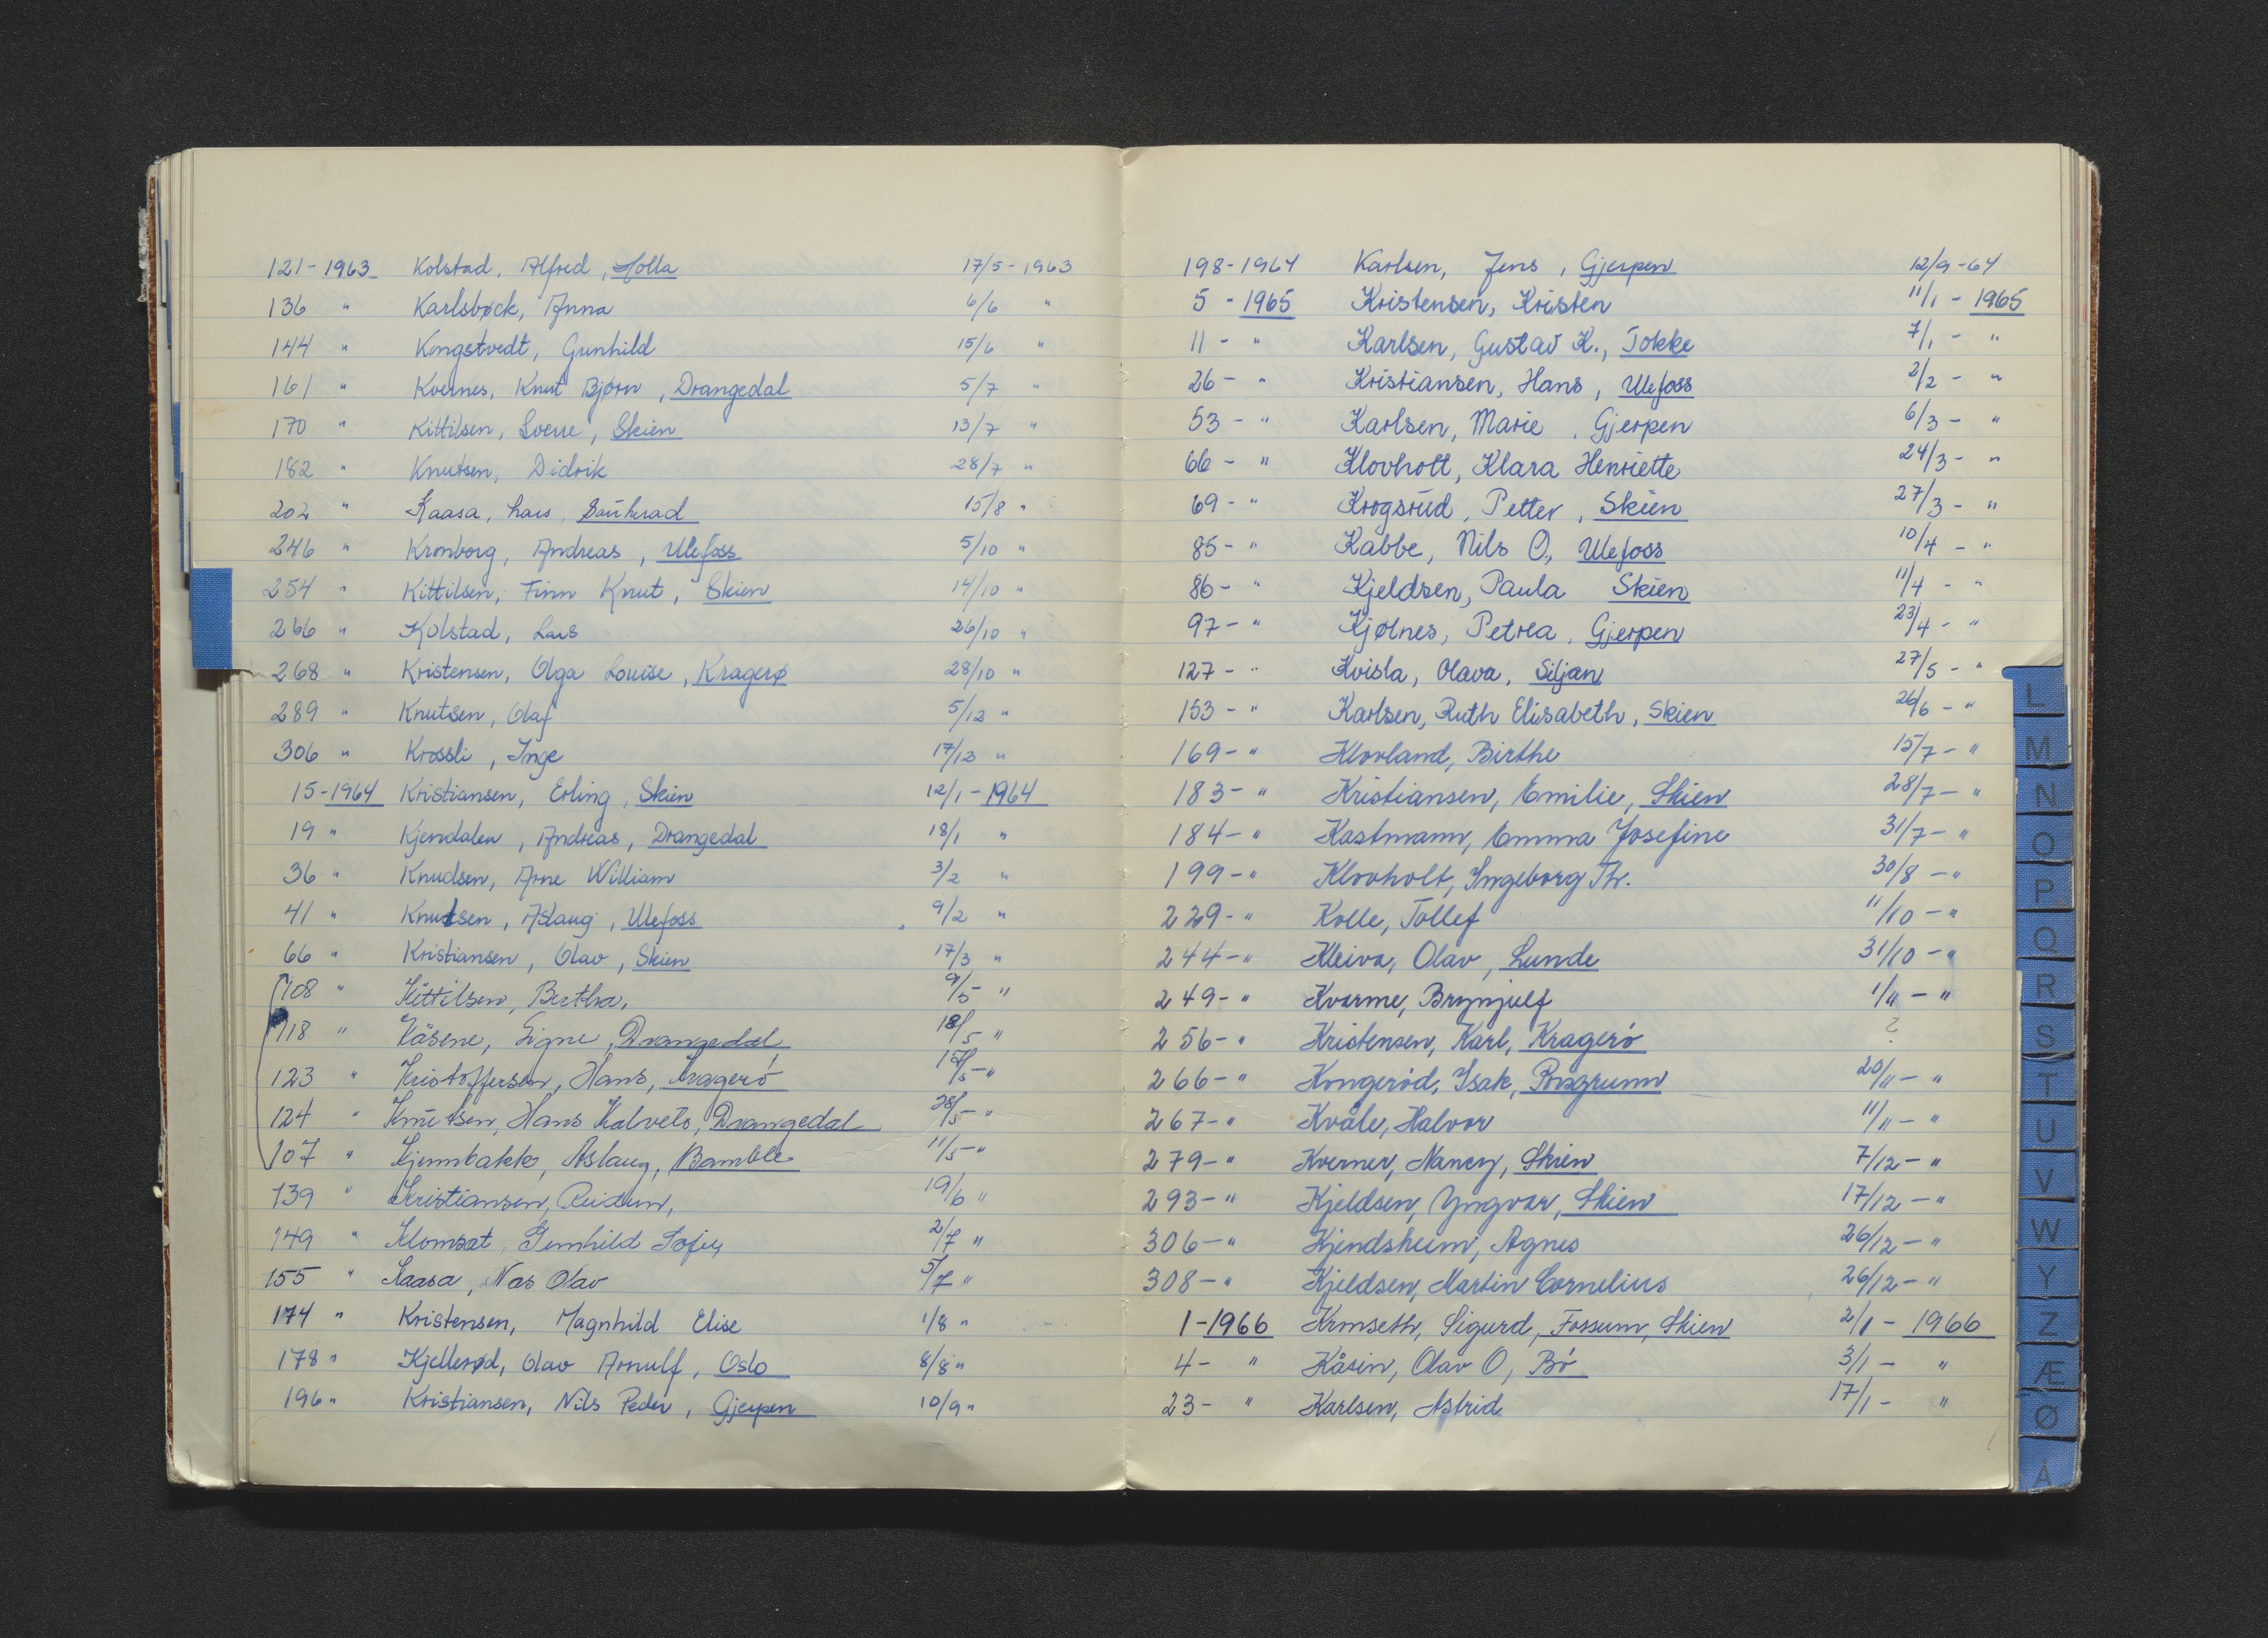 121-1963 Kolstad, Alfred, Holla 17/5-1963
136 " Karlsbøck, Anna 6/6 "
144 " Kongstvedt, Gunhild 15/6 "
161 " Kvernes, Knut Bjørn, Drangedal 5/7 "
170 " Kittilsen, Sverre, Skien 13/7 "
182 " Knutsen, Didrik 28/7 "
202 " Kaasa, Lars, Sauherad 15/8 "
246 " Kronborg, Andreas, Ulefoss 5/10 "
254 " Kittilsen, Finn Knut, Skien 14/10 "
266 " Kolstad, Lars 26/10 "
268 " Kristensen, Olga Louise, Kragerø 28/10 "
289 " Knutsen, Olaf 5/12 "
306 " Krossli, Inge 17/12 "
15-1964 Kristiansen, Erling, Skien 12/1-1964
19 " Kjendalen, Andreas, Drangedal 18/1 "
36 " Knudsen, Arne William 3/2 "
41 " Knutsen, Aslaug, Ulefoss 9/2 "
66 " Kristiansen, Olav, Skien 17/3 "
108 " Kittilsen, Bertha, 9/5- "
118 " Kåsene, Signe, Drangedal 18/5 "
123 " Kristoffersen, Hans, Kragerø 15/5- "
124 " Knutsen, Hans Kalveto, Drangedal 28/5- "
107 " Kjennbakk, Aslaug, Bamble 11/5- "
139 " Kristiansen, Reidun, 19/6 "
149 " Klomsat, Gunhild Sofie, 2/7 "
155 " Kaasa, Nas Olav 5/7 "
174 " Kristensen, Magnhild Elise 1/8 "
178 " Kjellerød, Olav Arnulf, Oslo 8/8 "
196 " Kristiansen, Nils Peder, Gjerpen 10/9 "
198-1964 Karlsen, Jens, Gjerpen 12/9-64
5-1965 Kristensen, Kristen 11/1-1965
11- " Karlsen, Gustav K., Tokke 7/1- "
26- " Kristiansen, Hans, Ulefoss 2/2- "
53- " Karlsen, Marie, Gjerpen 6/3- "
66- " Klovholt, Klara Henriette 24/3- "
69- " Krogsrud, Petter, Skien 27/3- "
85- " Kabbe, Nils O., Ulefoss 10/4- "
86- " Kjeldsen, Paula Skien 11/4- "
97- " Kjølnes, Petrea, Gjerpen 23/4- "
127- " Kvisla, Olava, Siljan 27/5- "
153- " Karlsen, Ruth Elisabeth, Skien 26/6- "
169- " Klovland, Birthe 15/7- "
183- " Kristiansen, Emilie, Skien 28/7- "
184- " Kastmann, Emma Josefine 31/7- "
199- " Klovholt, Ingeborg Th. 30/8- "
229- " Kolle, Tollef 11/10- "
244- " Kleiva, Olav, Lunde 31/10- "
249- " Kvarme, Brynjulf 1/11- "
256- " Kristensen, Karl, Kragerö ?
266- " Kongeröd, Isak, Porsgrunn 20/11- "
267- " Kvåle, Halvor 11/11- "
279- " Kverner, Nancy, Skien 7/12- "
293- " Kjeldsen, Yngvar, Skien 17/12- "
306- " Kjendsheim, Agnes 26/12- "
308- " Kjeldsen, Martin Cornelius 26/12- "
1-1966 Kromseth, Sigurd, Fossum, Skien 2/1-1966
4- " Kåsin, Olav O, Bö 3/1- "
23- " Karlsen, Astrid 17/1- "
L
M
N
O
P
Q
R
S
T
U
V
W
Y
Z
Æ
Ø
Å